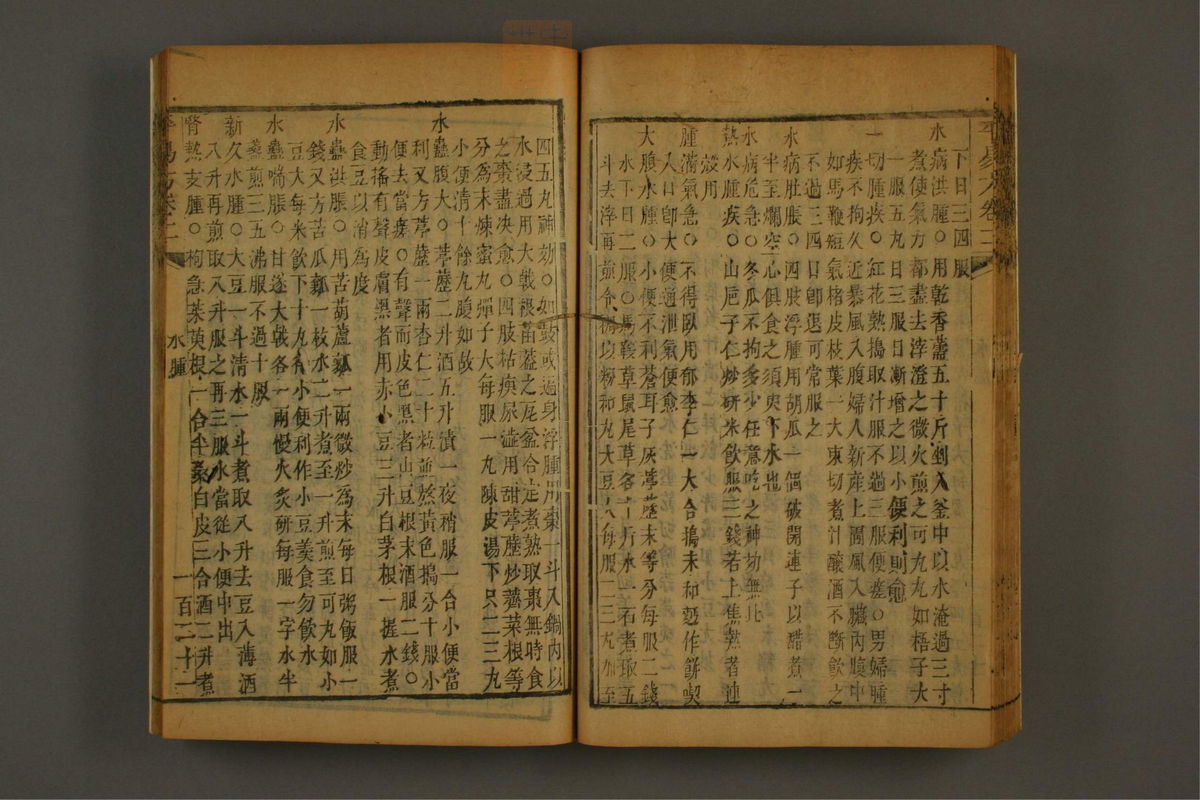 下日三四服
水病洪腫〇用乾香薷五十斤剉入釜中以水淹過三寸
煮使氣力都盡去滓澄之微火煎之可丸丸如梧子大
一服五丸日三服日漸增之以小便利則愈
一切腫疾〇紅花熟搗取汁服不過三服便瘥〇男婦腫
疾不拘久近暴風入腹婦人新産上圊風入臟內腹中
如馬鞭短氣楮皮枝葉一大束切煮汁釀酒不斷飲之
不過三四日卽退可常服之
水病肚脹〇四肢浮腫用胡瓜一個破開連子以醋煮一
半至爛空心俱食之須臾下水也
水病危急〇冬瓜不拘多少任意吃之神効無比
熱水腫疾〇山巵子仁炒研米飲服三錢若上焦熱者連
殼用
腫滿氣急〇不得臥用郁李仁一大合搗末和麪作餅喫
入口卽大便通泄氣便愈
大腹水腫〇小便不利蒼耳子灰葶藶末等分每服二錢
水下日二服〇馬鞭草鼠尾草各十斤水一石煮取五
斗去滓再煎令稠以粉和丸大豆大每服二三丸加至
四五丸神効〇如皷或遍身浮腫用棗一斗入鍋內以
水浸過用大戟根苗葢之瓦盆合定煮熟取棗無時食
之棗盡决愈〇四肢枯瘐尿澁用甜葶藶炒薺菜根等
分爲末煉蜜丸彈子大每服一丸陳皮湯下只二三丸
小便清十餘丸腹如故
水蠱腹大〇葶藶二升酒五升漬一夜稍服一合小便當
利又方葶藶一兩杏仁二十粒並熬黃色搗分十服小
便去當瘥〇有聲而皮色黑者山豆根末酒服二錢〇
動搖有聲皮膚黑者用赤小豆三升白茅根一握水煮
食豆以消爲度
水蠱洪脹〇用苦葫蘆瓤一兩微炒爲末每日粥飯服一
錢又方苦瓜瓤一枚水二升煮至一升煎至可丸如小
豆大每米飲下十丸待小便利作小豆羹食勿飲水
水蠱喘脹〇甘遂大戟各一兩慢火炙研每服一字水半
盞煎三五沸服不過十服
新久水腫〇大豆一斗清水一斗煮取八升去豆入薄酒
八升再煎取八升服之再三服水當從小便中出
腎熱支腫〇枸急茱萸根一合半桑白皮三合酒二升煮
水腫
一百二十二